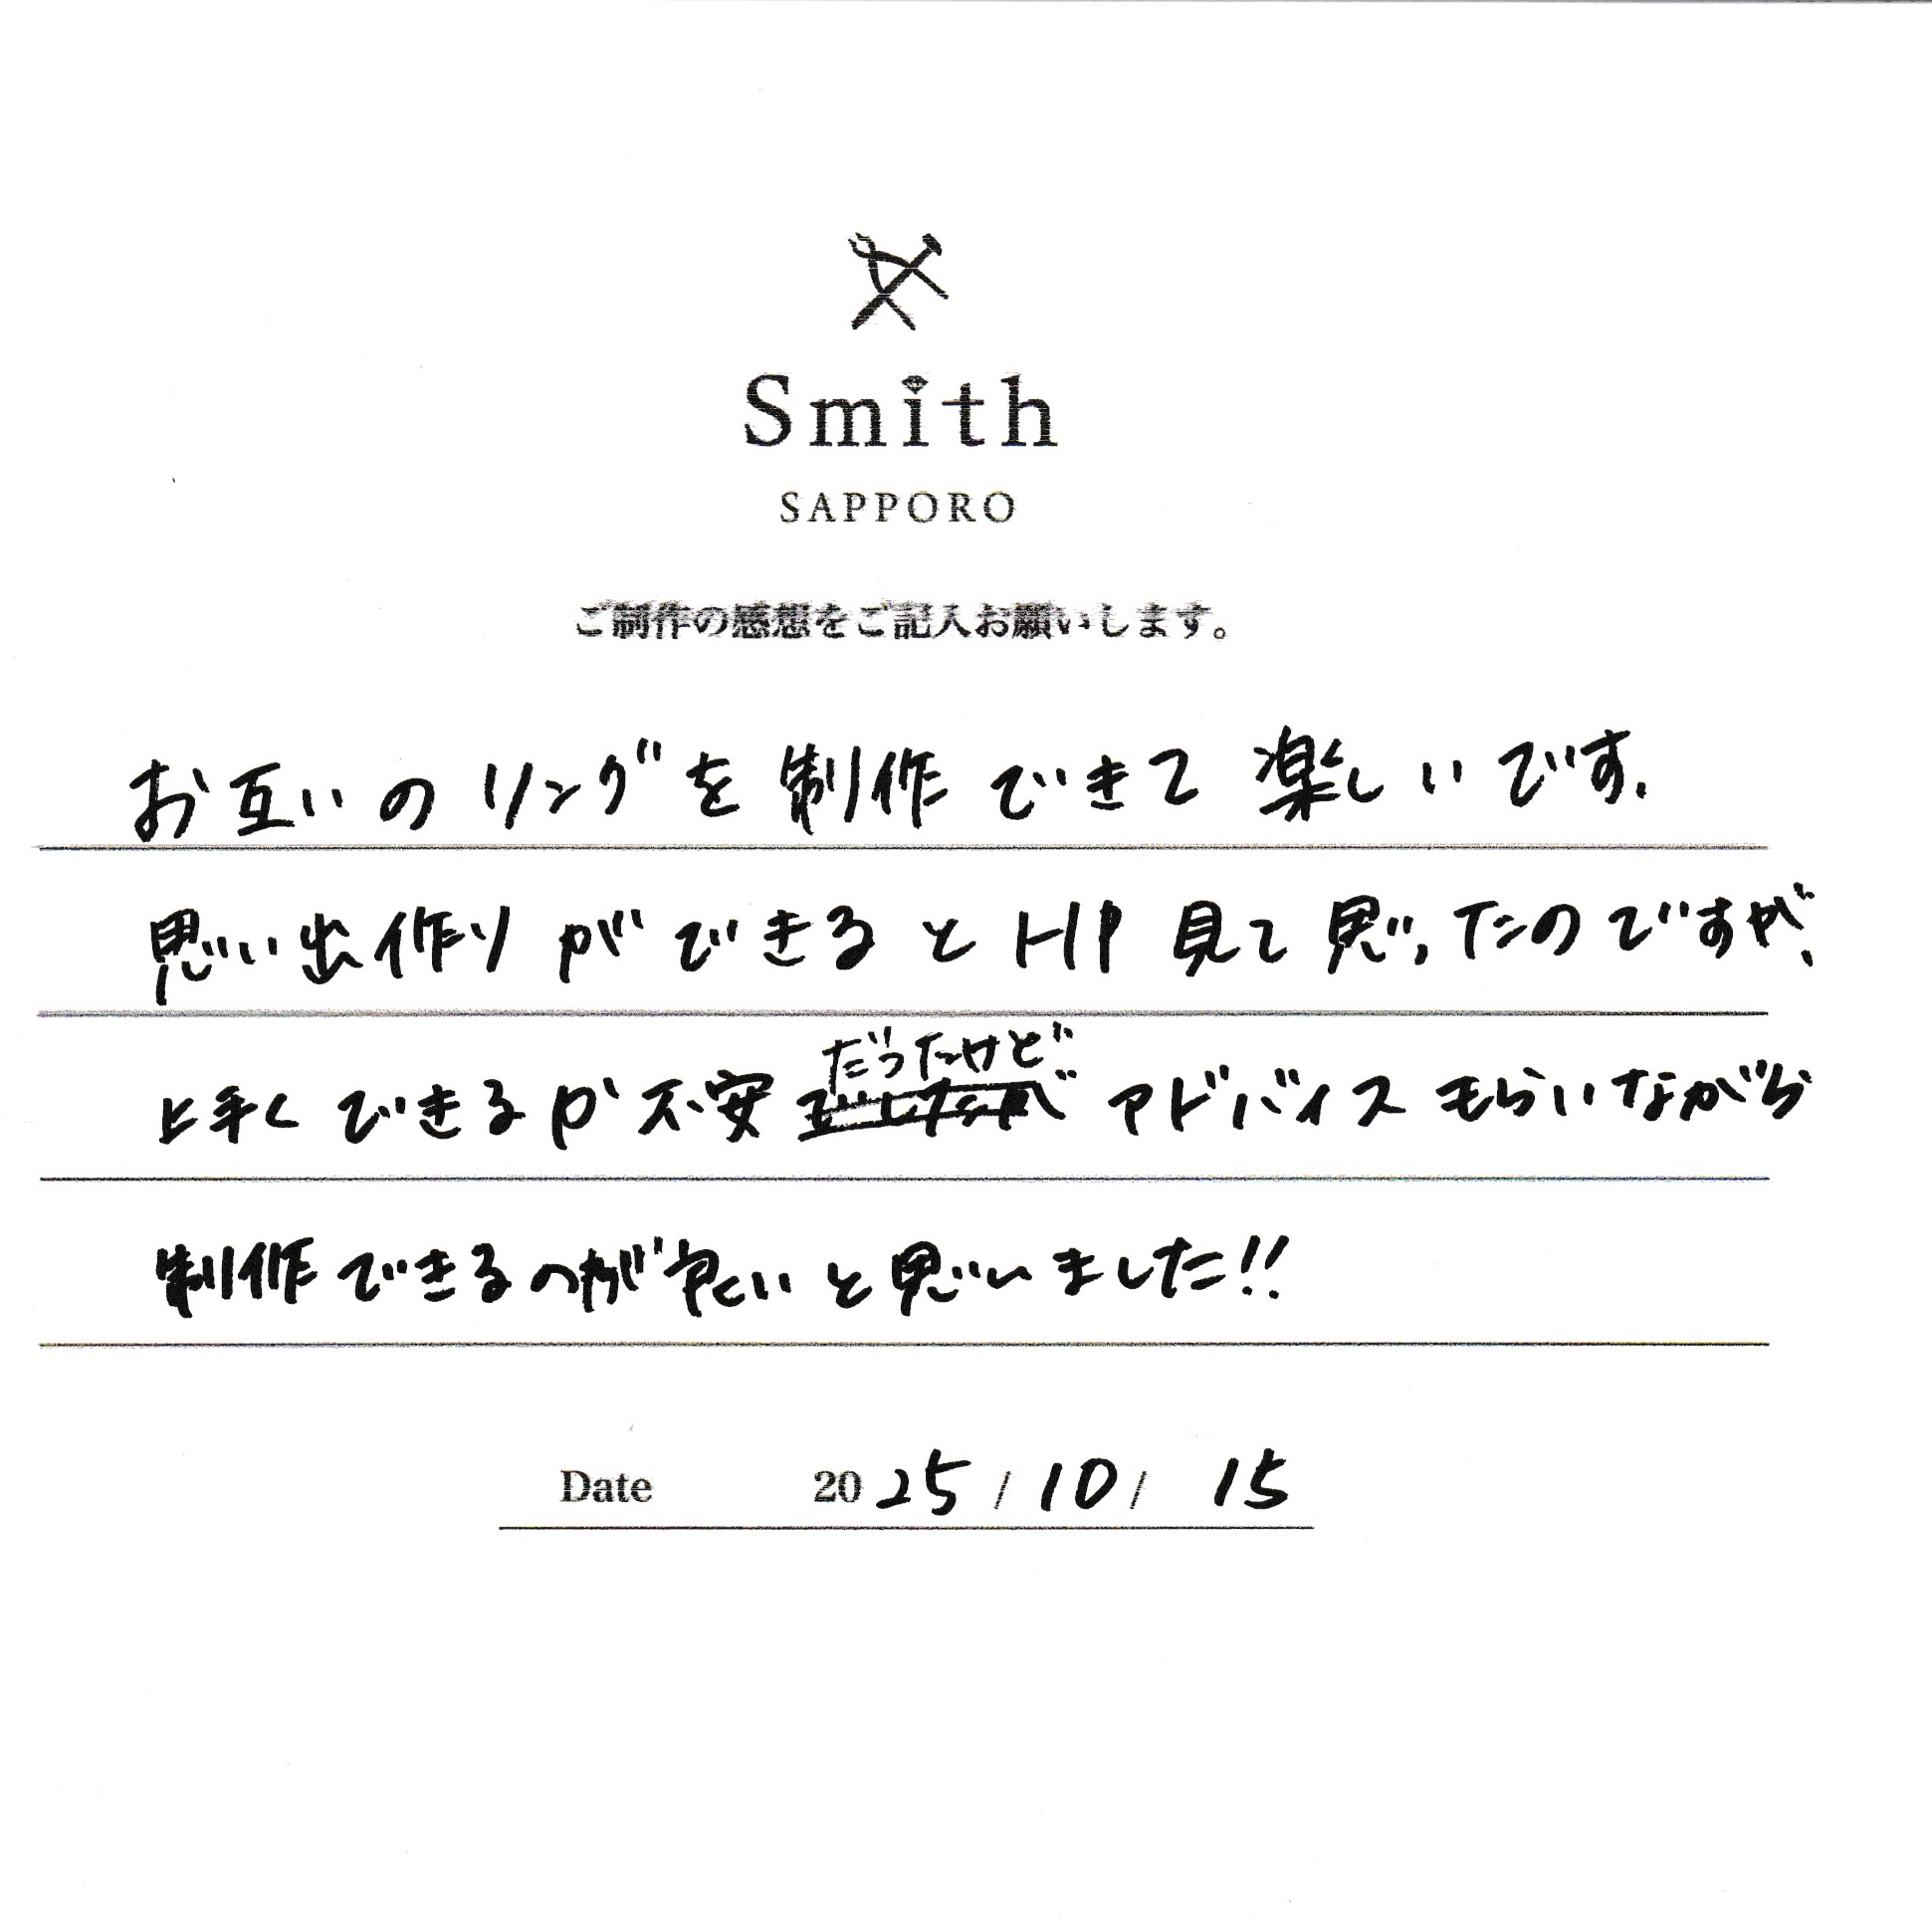 Smith
SAPPORO
ご制作の感想をご記入お願いします。
お互いのリングを制作できて楽しいです.
思い出作りができるとHP見て思ったのですが、
だったけど
上手くできるか不安 アドバイスもらいながら
制作できるのが良いと思いました!!
Date 2025/10/15